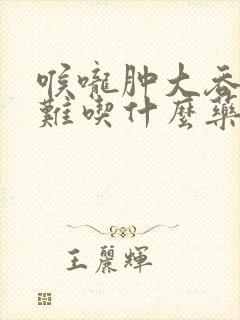 喉嚨肿大吞
難喫什麼藥
王麗輝